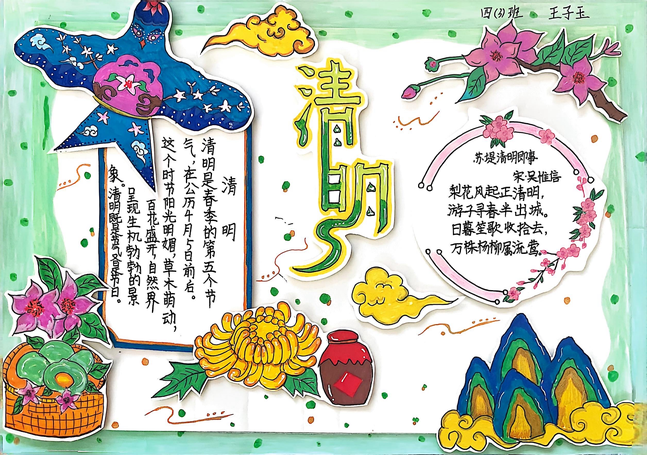 四(3)班 王子玉
清明
清明
清明是春季的第五个节
气，在公历4月5日前后。
这个时节阳光明媚，草木萌动，
百花盛开，自然界
呈现生机勃勃的景
象。清明既是节气，又是节日。
苏堤清明即事
宋·吴惟信
梨花风起正清明，
游子寻春半出城。
日暮笙歌收拾去，
万株杨柳属流莺。